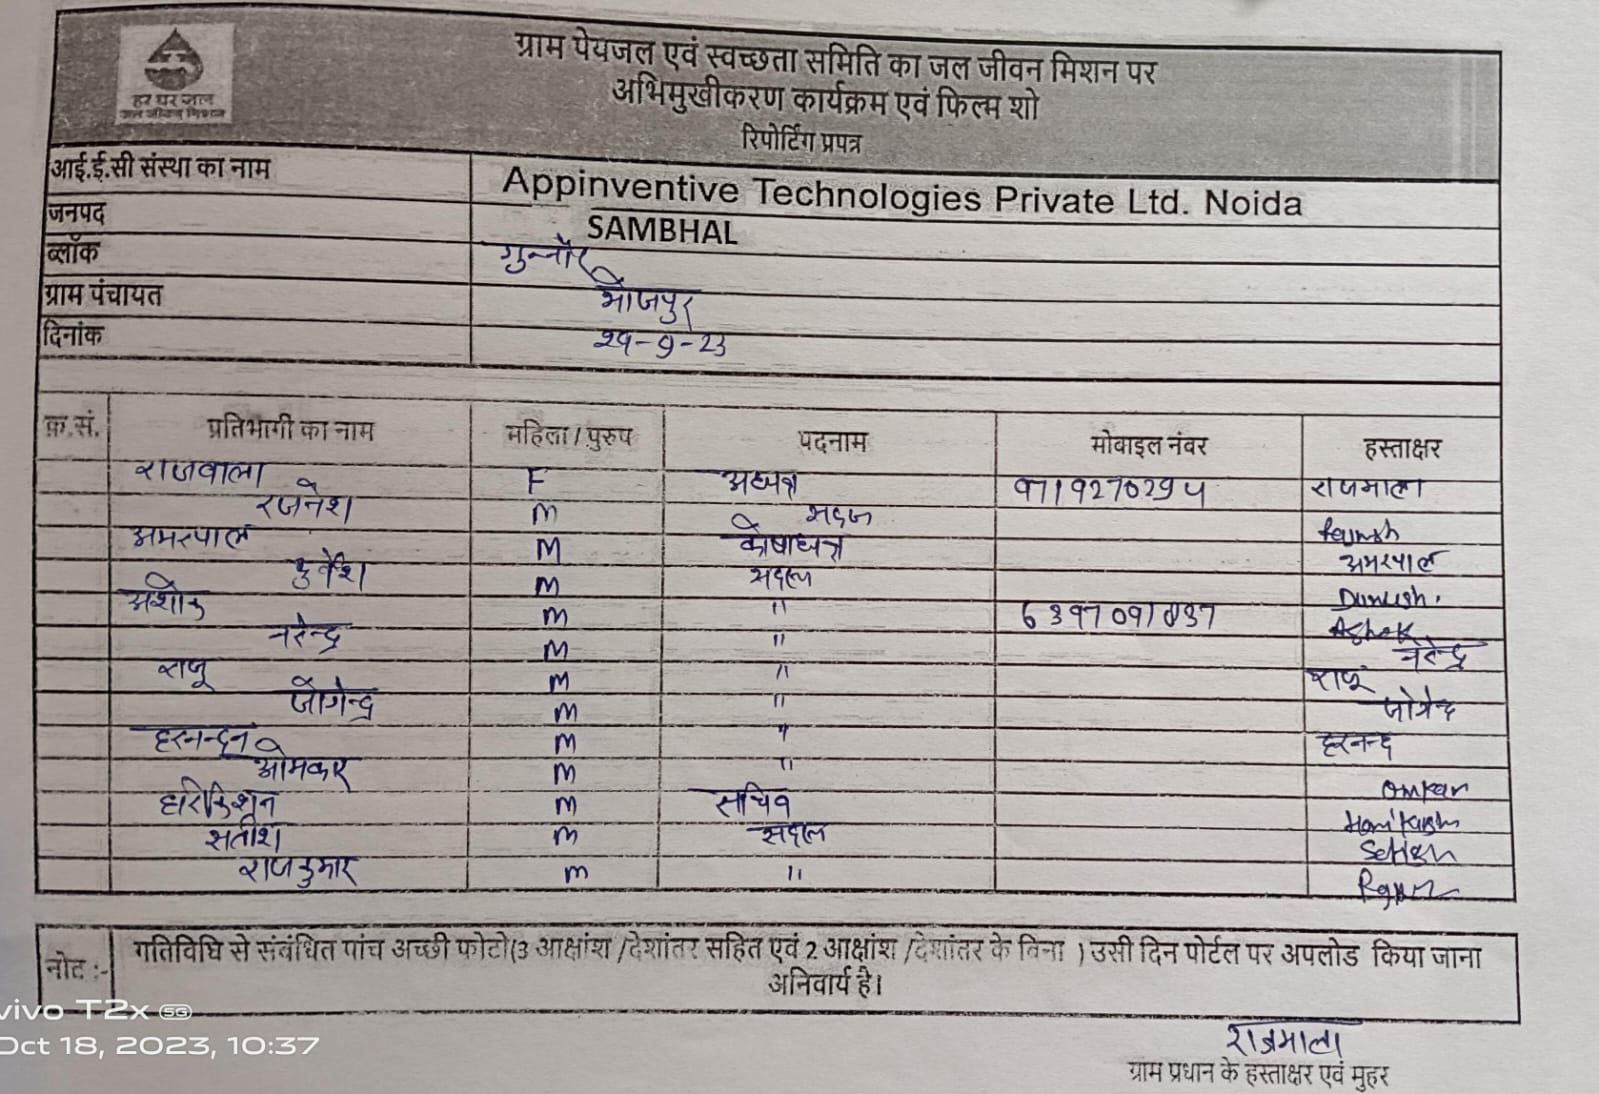 हर घर जल
जल जीवन मिशन
ग्राम पेयजल एवं स्वच्छता समिति का जल जीवन मिशन पर
अभिमुखीकरण कार्यक्रम एवं फिल्म शो
रिपोर्टिंग प्रपत्र
आई.ई.सी संस्था का नाम Appinventive Technologies Private Ltd. Noida
जनपद SAMBHAL
ब्लॉक गुन्नौर
ग्राम पंचायत भोजपुर
दिनांक
क्र.सं. प्रतिभागी का नाम महिला / पुरुष पदनाम मोबाइल नंबर हस्ताक्षर
राजवाला F अध्यक्ष राजमाला
रजनेश M सदस्य
अमरपाल M कोषाध्यक्ष अमरपाल
M सदस्य
अशोक M " Ashok
नरेन्द्र M " नरेन्द्र
राजू M " राजू
जोगेन्द्र M " जोगेन्द्र
हरनन्दन M " हरनन्द
ओमकार M " Omkar
हरिकिशन M सचिव
सतीश M सदस्य Satish
राजकुमार M "
नोट :- गतिविधि से संबंधित पांच अच्छी फोटो(3 आक्षांश /देशांतर सहित एवं 2 आक्षांश /देशांतर के बिना ) उसी दिन पोर्टल पर अपलोड किया जाना
अनिवार्य है।
vivo T2x 5G
Oct 18, 2023, 10:37
राजमाला
ग्राम प्रधान के हस्ताक्षर एवं मुहर